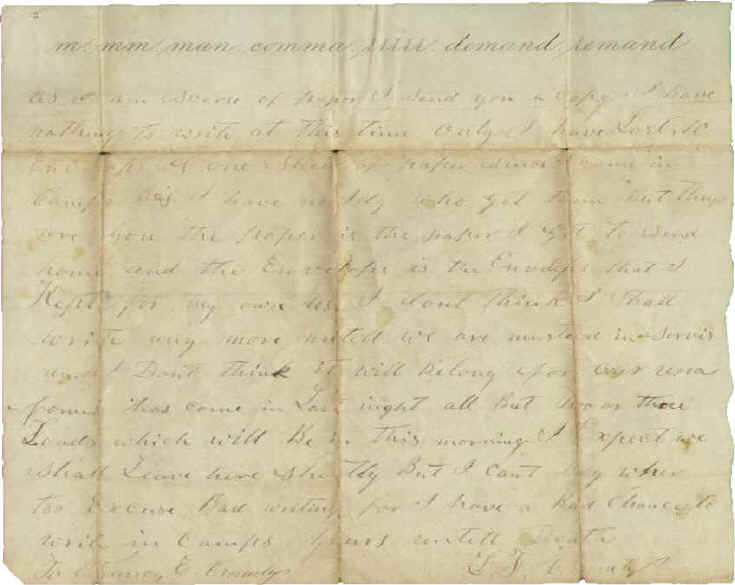 m mm man comma demand remand
as I am Scerse of paper I send you a Copy I have
nothing to write at this time only I have Lost 10
Envelops & one Sheet of paper since I came in
Camps I have no Idy who got them but they
are gon the paper is the paper I got to Send
home and the Envelops is the Envelops that I
Kept for my own use I dont think I shal
write any more untell we are musterd in Servis
and I Dont think it will be long for our
has come in Last night all But two or three
Loads which will Be in this morning I Expect we
Shall Leave here Shortly But I Cant Say when
Excuse Bad writing for I have a Bad Chance to
write in Camps yours untell Death
To Nancy E